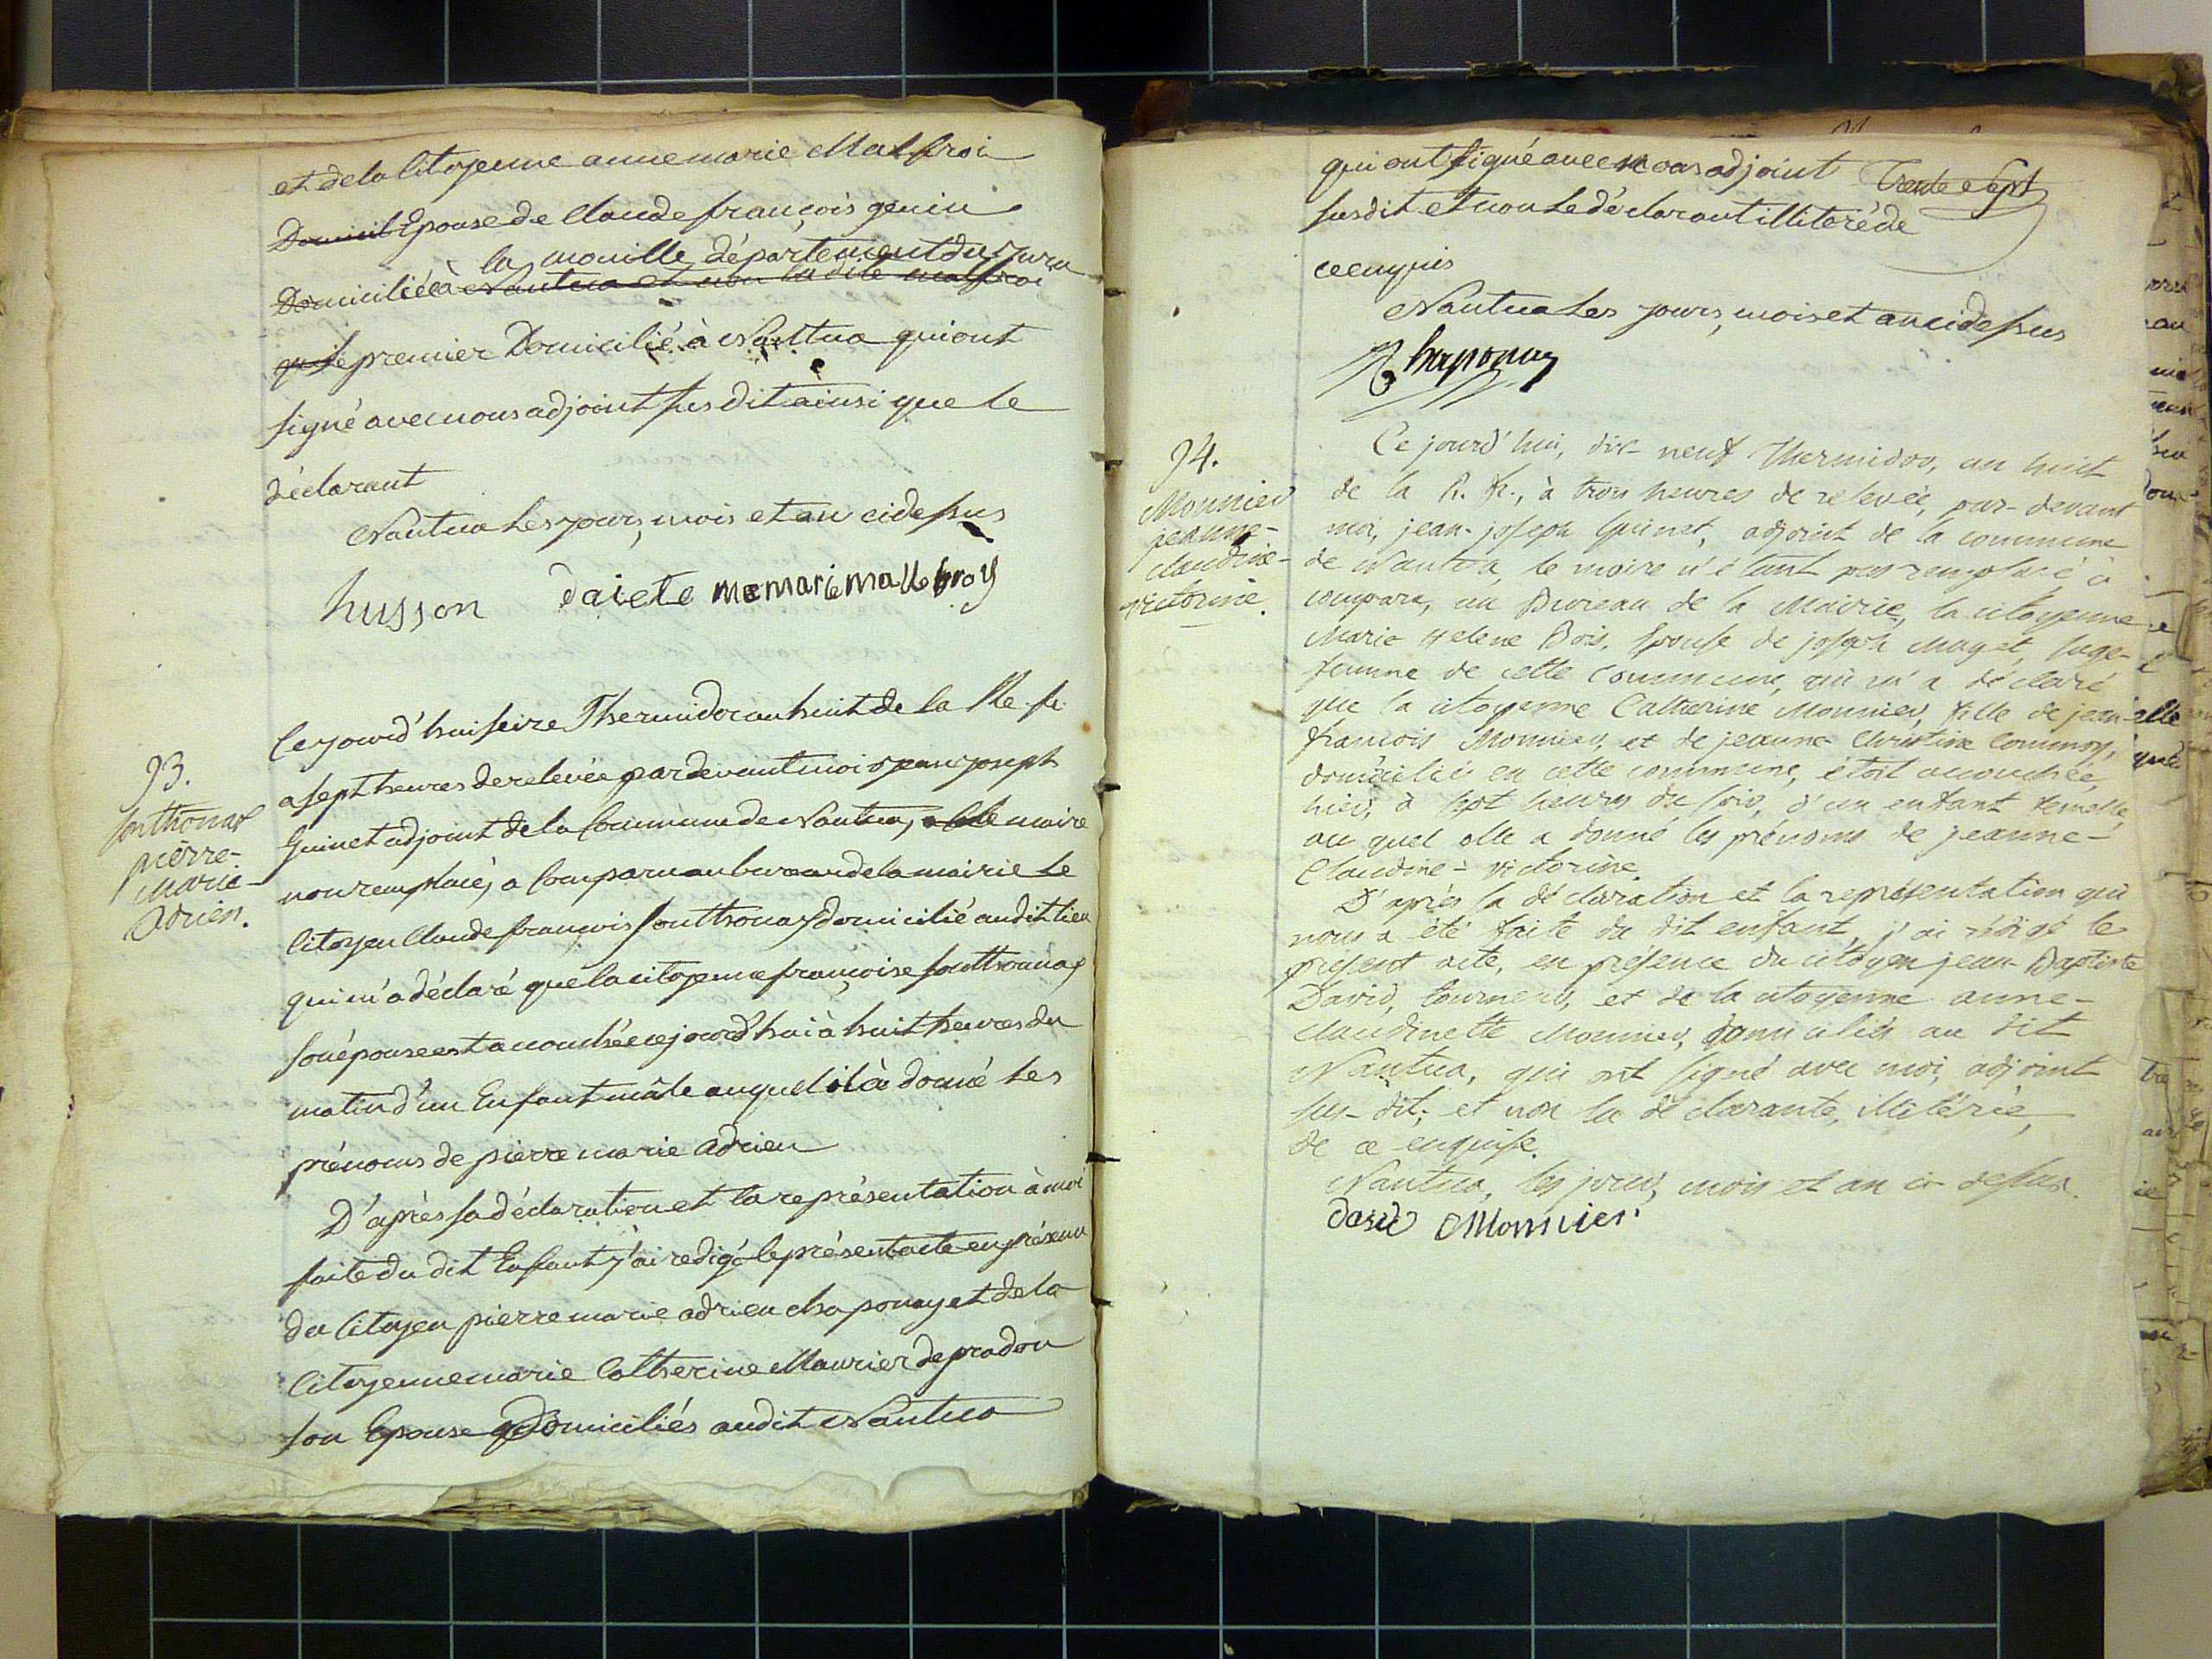 et de la Citoyenne anne marie Malfroi
Domicil Epouse de Claude françois genin
la mouille département du Jura
Domiciliée à Nantua et non la dite malfroi
qui le premier Domicilié à Nantua qui ont
signé avec nous adjoint sus dit ainsi que le
déclarant
Nantua les jours, mois et an ci dessus
husson daiete
93.
Sonthonax
pierre-
Marie-
Adrien.
Ce jourd'hui seize Thermidor an huit de la Re. fr.
a sept heures de relevée par devant moi jean joseph
Guinet adjoint de la Commune de Nantua, le maire
non remplacé, a Comparu au bureau de la mairie le
Citoyen Claude françois Sonthonax domicilié au dit lieu
qui m'a déclaré que la citoyenne françoise Sonthonax
son épouse est accouchée ce jourd'hui à huit heures du
matin d'un Enfant mâle auquel il à donné les
prénoms de pierre marie adrien
D'après sa déclaration et la représentation à moi
faite du dit Enfant j'ai redigé le présent acte en présence
du Citoyen pierre marie adrien chaponay et de la
Citoyenne marie Catherine Maurier de pradon
son Epouse Domiciliés au dit Nantua
qui ont signé avec nous adjoint
Trente Sept
sus dit et non le déclarant illiteré de
ce enquis
Nantua les jours, mois et an ci dessus
Chaponay
94.
Monnier
jeanne-
claudine-
victorine.
Ce jourd'hui, dix-neuf Thermidor, an huit
de la R. fr., à trois heures de relevée, par-devant
moi, jean-joseph Guinet, adjoint de la commune
de Nantua, le maire n'étant pas remplacé, a
comparu, au Bureau de la Mairie, la citoyenne
Marie helene Bois, Epouse de joseph Maget, sage-
femme de cette Commune, qui m'a déclaré
que la citoyenne Catherine Monnier, fille de jean-
francois Monnier, et de jeanne Christine
domiciliés en cette commune, étoit accouchée,
hier, à sept heures du soir, d'un enfant femelle,
au quel elle a donné les prénoms de jeanne-
Claudine-victorine.
D'après la déclaration et la représentation qui
nous a été faite du dit enfant, j'ai rédigé le
présent acte, en présence du citoyen jean-Baptiste
David, tourneur, et de la citoyenne anne-
claudinette Monnier, domiciliés au dit
Nantua, qui ont signé avec moi, adjoint
sus-dit; et non la déclarante, illitérée,
de ce enquise.
Nantua, les jour, mois et an ci-dessus.
david Monnier